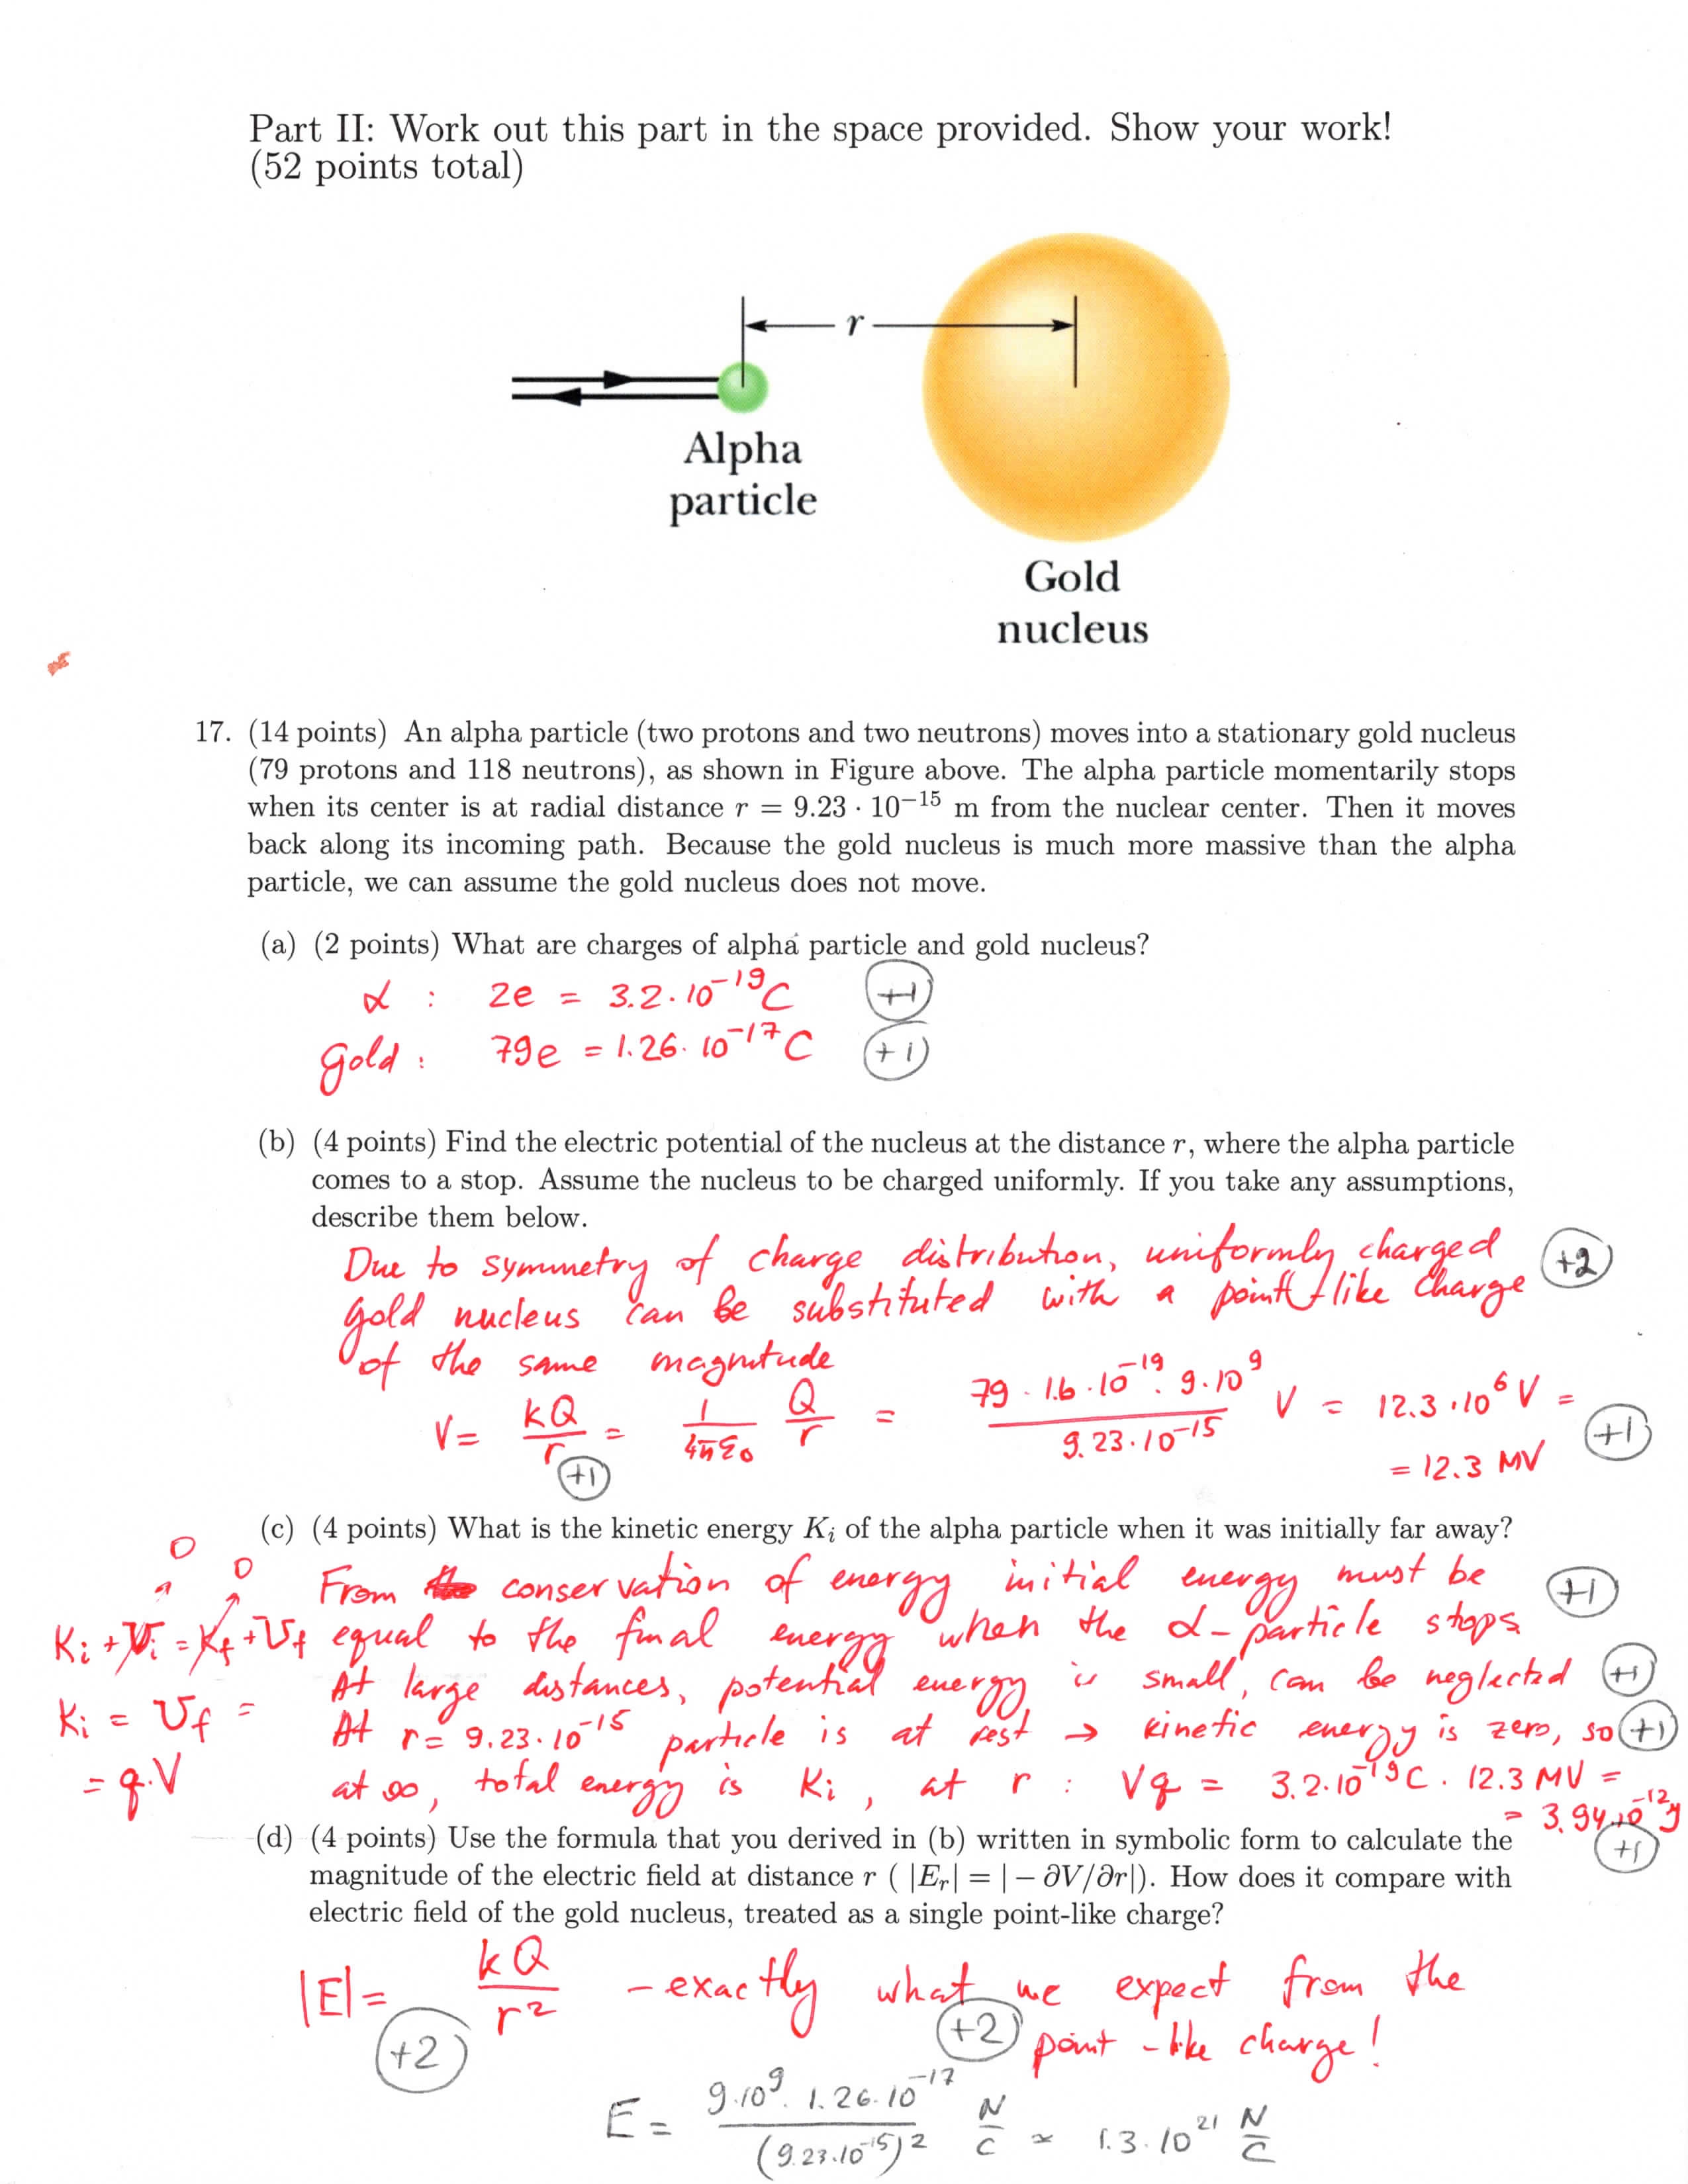 Part II: Work out this part in the space provided. Show your work!
(52 points total)
r
Alpha
particle
Gold
nucleus
17. (14 points) An alpha particle (two protons and two neutrons) moves into a stationary gold nucleus
(79 protons and 118 neutrons), as shown in Figure above. The alpha particle momentarily stops
when its center is at radial distance r = 9.23 · 10⁻¹⁵ m from the nuclear center. Then it moves
back along its incoming path. Because the gold nucleus is much more massive than the alpha
particle, we can assume the gold nucleus does not move.
(a) (2 points) What are charges of alpha particle and gold nucleus?
α : 2e = 3.2·10⁻¹⁹C +1
gold : 79e = 1.26·10⁻¹⁷C +1
(b) (4 points) Find the electric potential of the nucleus at the distance r, where the alpha particle
comes to a stop. Assume the nucleus to be charged uniformly. If you take any assumptions,
describe them below.
Due to symmetry of charge distribution, uniformly charged +2
gold nucleus can be substituted with a point-like charge
of the same magnitude
V = kQ/r = 1/4πε₀ Q/r = 79 · 1.6 · 10⁻¹⁹ · 9·10⁹ / 9.23·10⁻¹⁵ V = 12.3·10⁶ V =
+1 = 12.3 MV +1
(c) (4 points) What is the kinetic energy Kᵢ of the alpha particle when it was initially far away?
0 0
From conservation of energy initial energy must be +1
Kᵢ + Uᵢ = K_f + U_f equal to the final energy when the α-particle stops
At large distances, potential energy is small, can be neglected +1
Kᵢ = U_f = At r = 9.23·10⁻¹⁵ particle is at rest → kinetic energy is zero, so +1
= q·V at ∞, total energy is Kᵢ, at r : Vq = 3.2·10⁻¹⁹C · 12.3 MV =
= 3.94·10⁻¹² J
+1
(d) (4 points) Use the formula that you derived in (b) written in symbolic form to calculate the
magnitude of the electric field at distance r ( |Eᵣ| = | − ∂V/∂r|). How does it compare with
electric field of the gold nucleus, treated as a single point-like charge?
|E| = kQ/r² - exactly what we expect from the
+2 +2 point-like charge!
E = 9·10⁹ · 1.26·10⁻¹⁷ / (9.23·10⁻¹⁵)² N/C ≈ 1.3·10²¹ N/C